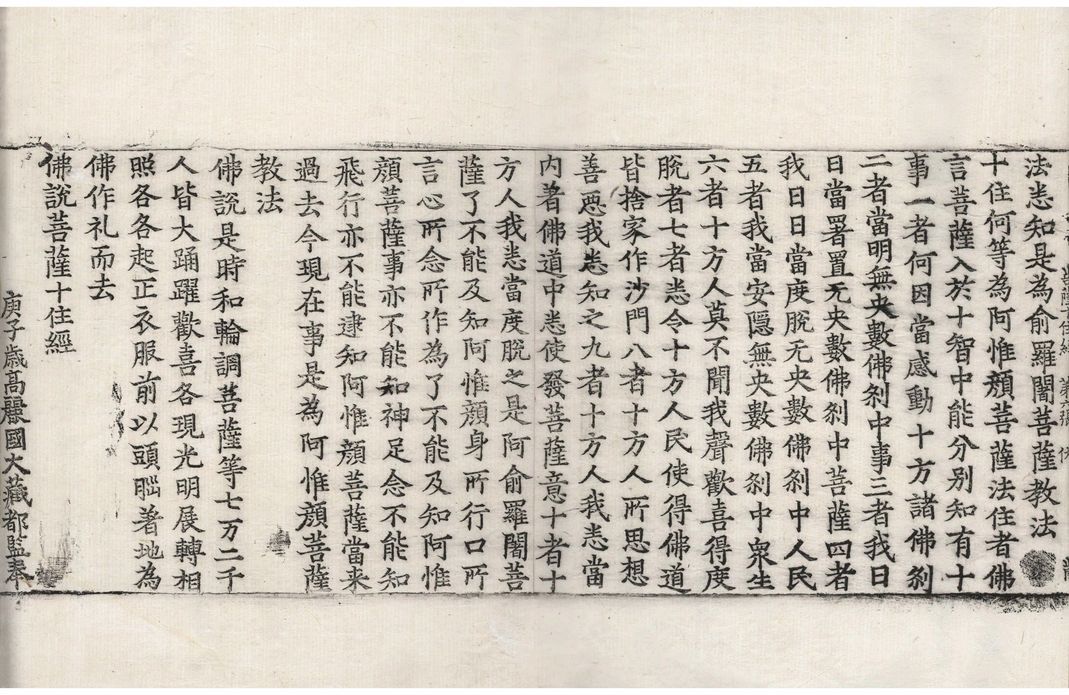 法悉知是為俞羅闍菩薩教法
十住何等為阿惟顏菩薩法住者佛
言菩薩入於十智中能分別知有十
事一者何因當感動十方諸佛刹
二者當明無央數佛刹中事三者我日
日當署置无央數佛刹中菩薩四者
我日日當度脫无央數佛刹中人民
五者我當安隱無央數佛刹中衆生
六者十方人莫不聞我聲歡喜得度
脫者七者悉令十方人民使得佛道
皆捨家作沙門八者十方人所思想
善惡我悉知之九者十方人我悉當
内着佛道中悉使發菩薩意十者十
方人我悉當度脫之是阿俞羅闍菩
薩了不能及知阿惟顏身所行口所
言心所念所作為了不能及知阿惟
顏菩薩事亦不能知神足念不能知
飛行亦不能逮知阿惟顏菩薩當来
過去今現在事是為阿惟顏菩薩
教法
佛說是時和輪調菩薩等七万二千
人皆大踊躍歡喜各現光明展轉相
照各各起正衣服前以頭腦著地為
佛作礼而去
佛說菩薩十住經
庚子歳高麗國大藏都監奉